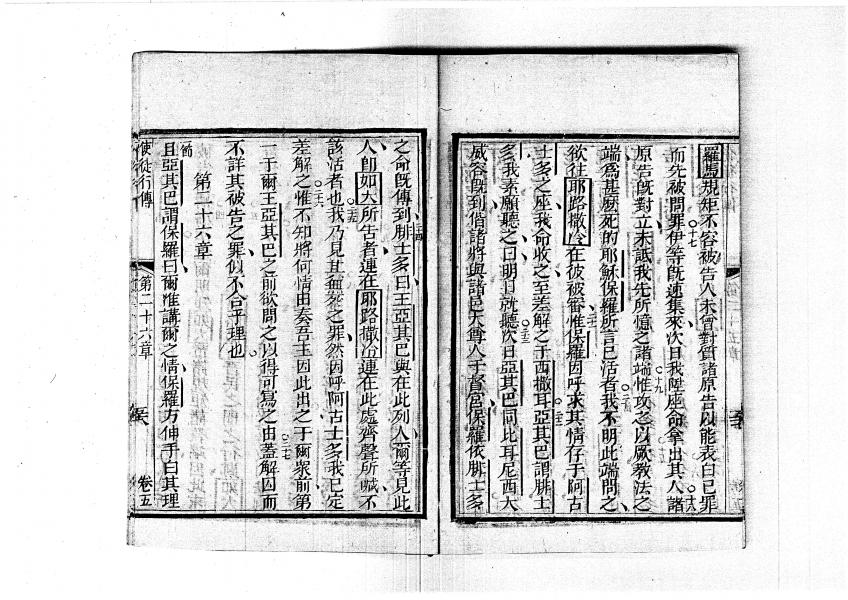 羅馬規矩不容被告人未曾對質諸原告以能表白已罪
而先被問罪伊等既速集來次日我陞座命拿出其人諸
原告既對立未詆我先所憶之諸端惟攻之以厥教法之
端爲甚厥死的耶穌保羅所言已活者我不明此端問之
欲往耶路撒冷在彼被審惟保羅因呼求其情存于阿古
士多之座我命收之至差解之于西撒耳亞其巴謂腓士
多我素願聽之曰明日就聽次日亞其巴同比耳尼西大
威容既到偕諸將與諸邑大尊人于督宮保羅依腓士多
之命既傳到腓士多曰王亞其巴與在此列人爾等見此
人卽如大所告者連在耶路撒冷連在此處齊聲所喊不
該活者也我乃見其無死之罪然因呼阿古士多我已定
差解之惟不知將何情由奏吾主因此出之于爾衆前第
一于爾王亞其巴之前欲問之以得可寫之由蓋解囚而
不詳其被告之罪似不合乎理也
第二十六章
且亞其巴謂保羅曰爾准講爾之情保羅方伸手曰其理
使徒行傳
第二十六章
卷五